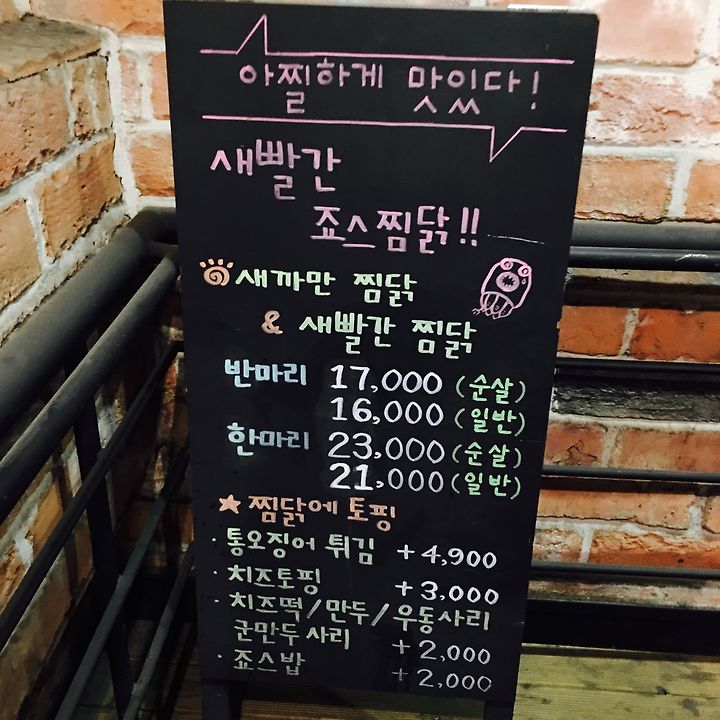 아찔하게 맛있다!
새빨간
죠스찜닭!!
새까만 찜닭
& 새빨간 찜닭
반마리 17,000 (순살)
16,000 (일반)
한마리 23,000 (순살)
21,000 (일반)
★ 찜닭에 토핑
· 통오징어 튀김 +4,900
· 치즈토핑 +3,000
· 치즈떡/만두/우동사리
군만두사리 +2,000
· 죠스밥 +2,000